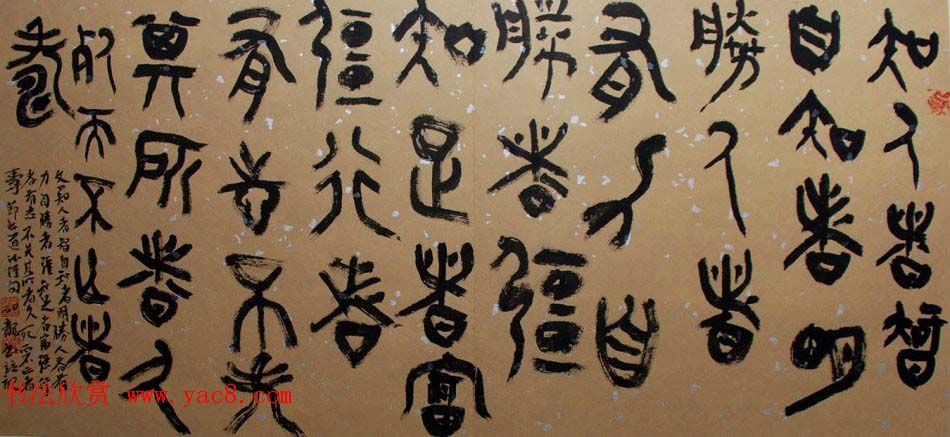 知人者智
自知者明
勝人者
有力自
勝者彊
知足者富
彊行者
有志不失
其所者久
死而不亡者
壽
文曰知人者智自知者明勝人者有
力自勝者強知足者富強行
者有志不失其所者久死而不亡者
壽
书法欣赏 www.yac8.com